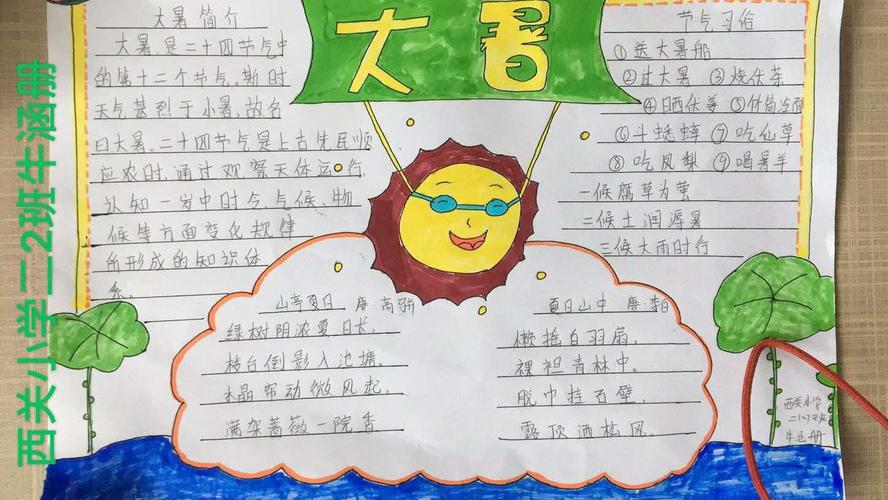 西关小学二2班牛涵册
大暑
大暑简介
大暑是二十四节气中
的第十二个节气。斯时
天气甚烈于小暑,故名
曰大暑。二十四节气是上古先民顺
应农时,通过观察天体运行
认知一岁中时令、气候、物
候等方面变化规律
所形成的知识体
系。
节气习俗
①送大暑船
②过大暑 ③烧伏茶
④晒伏姜 ⑤
⑥斗蟋蟀 ⑦吃仙草
⑧吃凤梨 ⑨喝暑羊
一候腐草为萤
二候土润溽暑
三候大雨时行
山亭夏日 唐·高骈
绿树阴浓夏日长,
楼台倒影入池塘。
水晶帘动微风起,
满架蔷薇一院香
夏日山中 唐·李白
懒摇白羽扇,
裸袒青林中。
脱巾挂石壁,
露顶洒松风。
西关小学
二(2)班
牛涵册